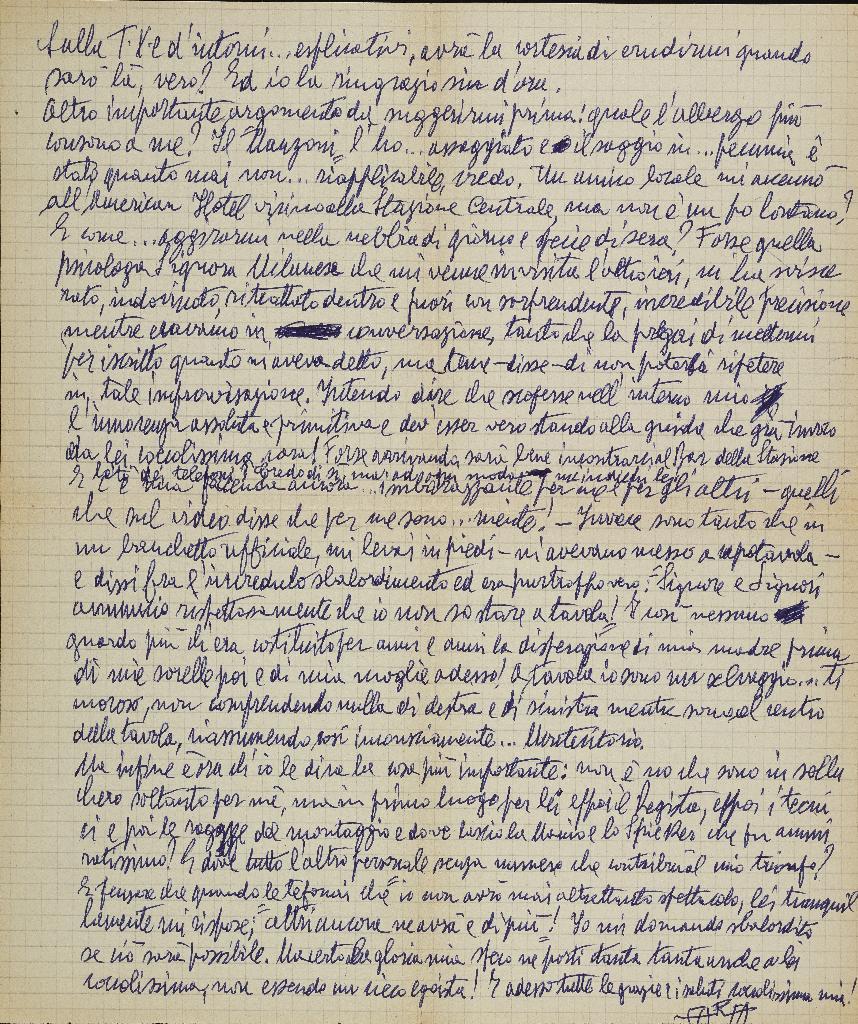 Sulla T.V. e d'intorni... esplicativi, avrà la cortesia di erudirmi quando
sarò là, vero? Ed io la ringrazio sin d'ora.
Altro importante argomento da suggerirmi prima: quale l'albergo più
consono a me? Il Manzoni l'ho... assaggiato e il saggio in... pecunia è
stato quanto mai non... riapplicabile, credo. Un amico locale mi accennò
all'American Hotel vicino alla Stazione Centrale, ma non è un po lontano?
E come... aggirarmi nella nebbia di giorno e specie di sera? Forse quella
psicologa Signora Milanese che mi venne in visita l'altro ieri, mi ha
indovinato, ritrattato dentro e fuori con sorprendente, incredibile precisione
mentre eravamo in conversazione, tanto che la pregai di mettermi
per iscritto quanto mi aveva detto, ma teme - disse - di non poterla ripetere
in tale improvvisazione. Intendo dire che scoperse nell'interno mio
l'innocenza assoluta e primitiva e dev'esser vero stando alla guida che già invoco
da lei cocolissima cara! Forse arrivando, sarà bene incontrarci al Bar della Stazione
E è una faccenda ancora... imbarazzante per me e per gli altri - quelli
che sul video disse che per me sono... niente! - Invece sono tanto che in
un banchetto ufficiale, mi levai in piedi - mi avevano messo a capotavola -
e dissi fra l'incredulo sbalordimento ed era purtroppo vero: "Signore e Signori
annuncio rispettosamente che io non so stare a tavola! E così nessuno
guardò più chi era costituito per anni e anni la disperazione di mia madre prima
di mie sorelle poi e di mia moglie adesso! A tavola io sono un selvaggio... ti
moroso, non comprendendo nulla di destra e di sinistra mentre sono al centro
della tavola, riassumendo così inconsciamente... Montecitorio.
Ma infine è ora ch'io le dica la cosa più importante: non è no che sono in sollu
chero soltanto per me, ma in primo luogo per lei e poi il Regista, e poi i tecni
ci e poi le ragazze del montaggio e dove lascio la Mario e lo Speaker che fu ammi
ratissimo? E dove tutto l'altro personale senza nomea che contribuì al mio trionfo?
E pensare che quando le telefonai che "io non avrò mai altrettanto spettacolo, lei tranquil
lamente mi rispose: "altri ancora ne avrà e di più"! Io mi domando sbalordito
se ciò sarà possibile. Ma certo la gloria mia spero ne porti tanta tanta anche a lei
cocolissima, non essendo un cieco egoista! E adesso tutte le grazie i saluti cocolissima mia!